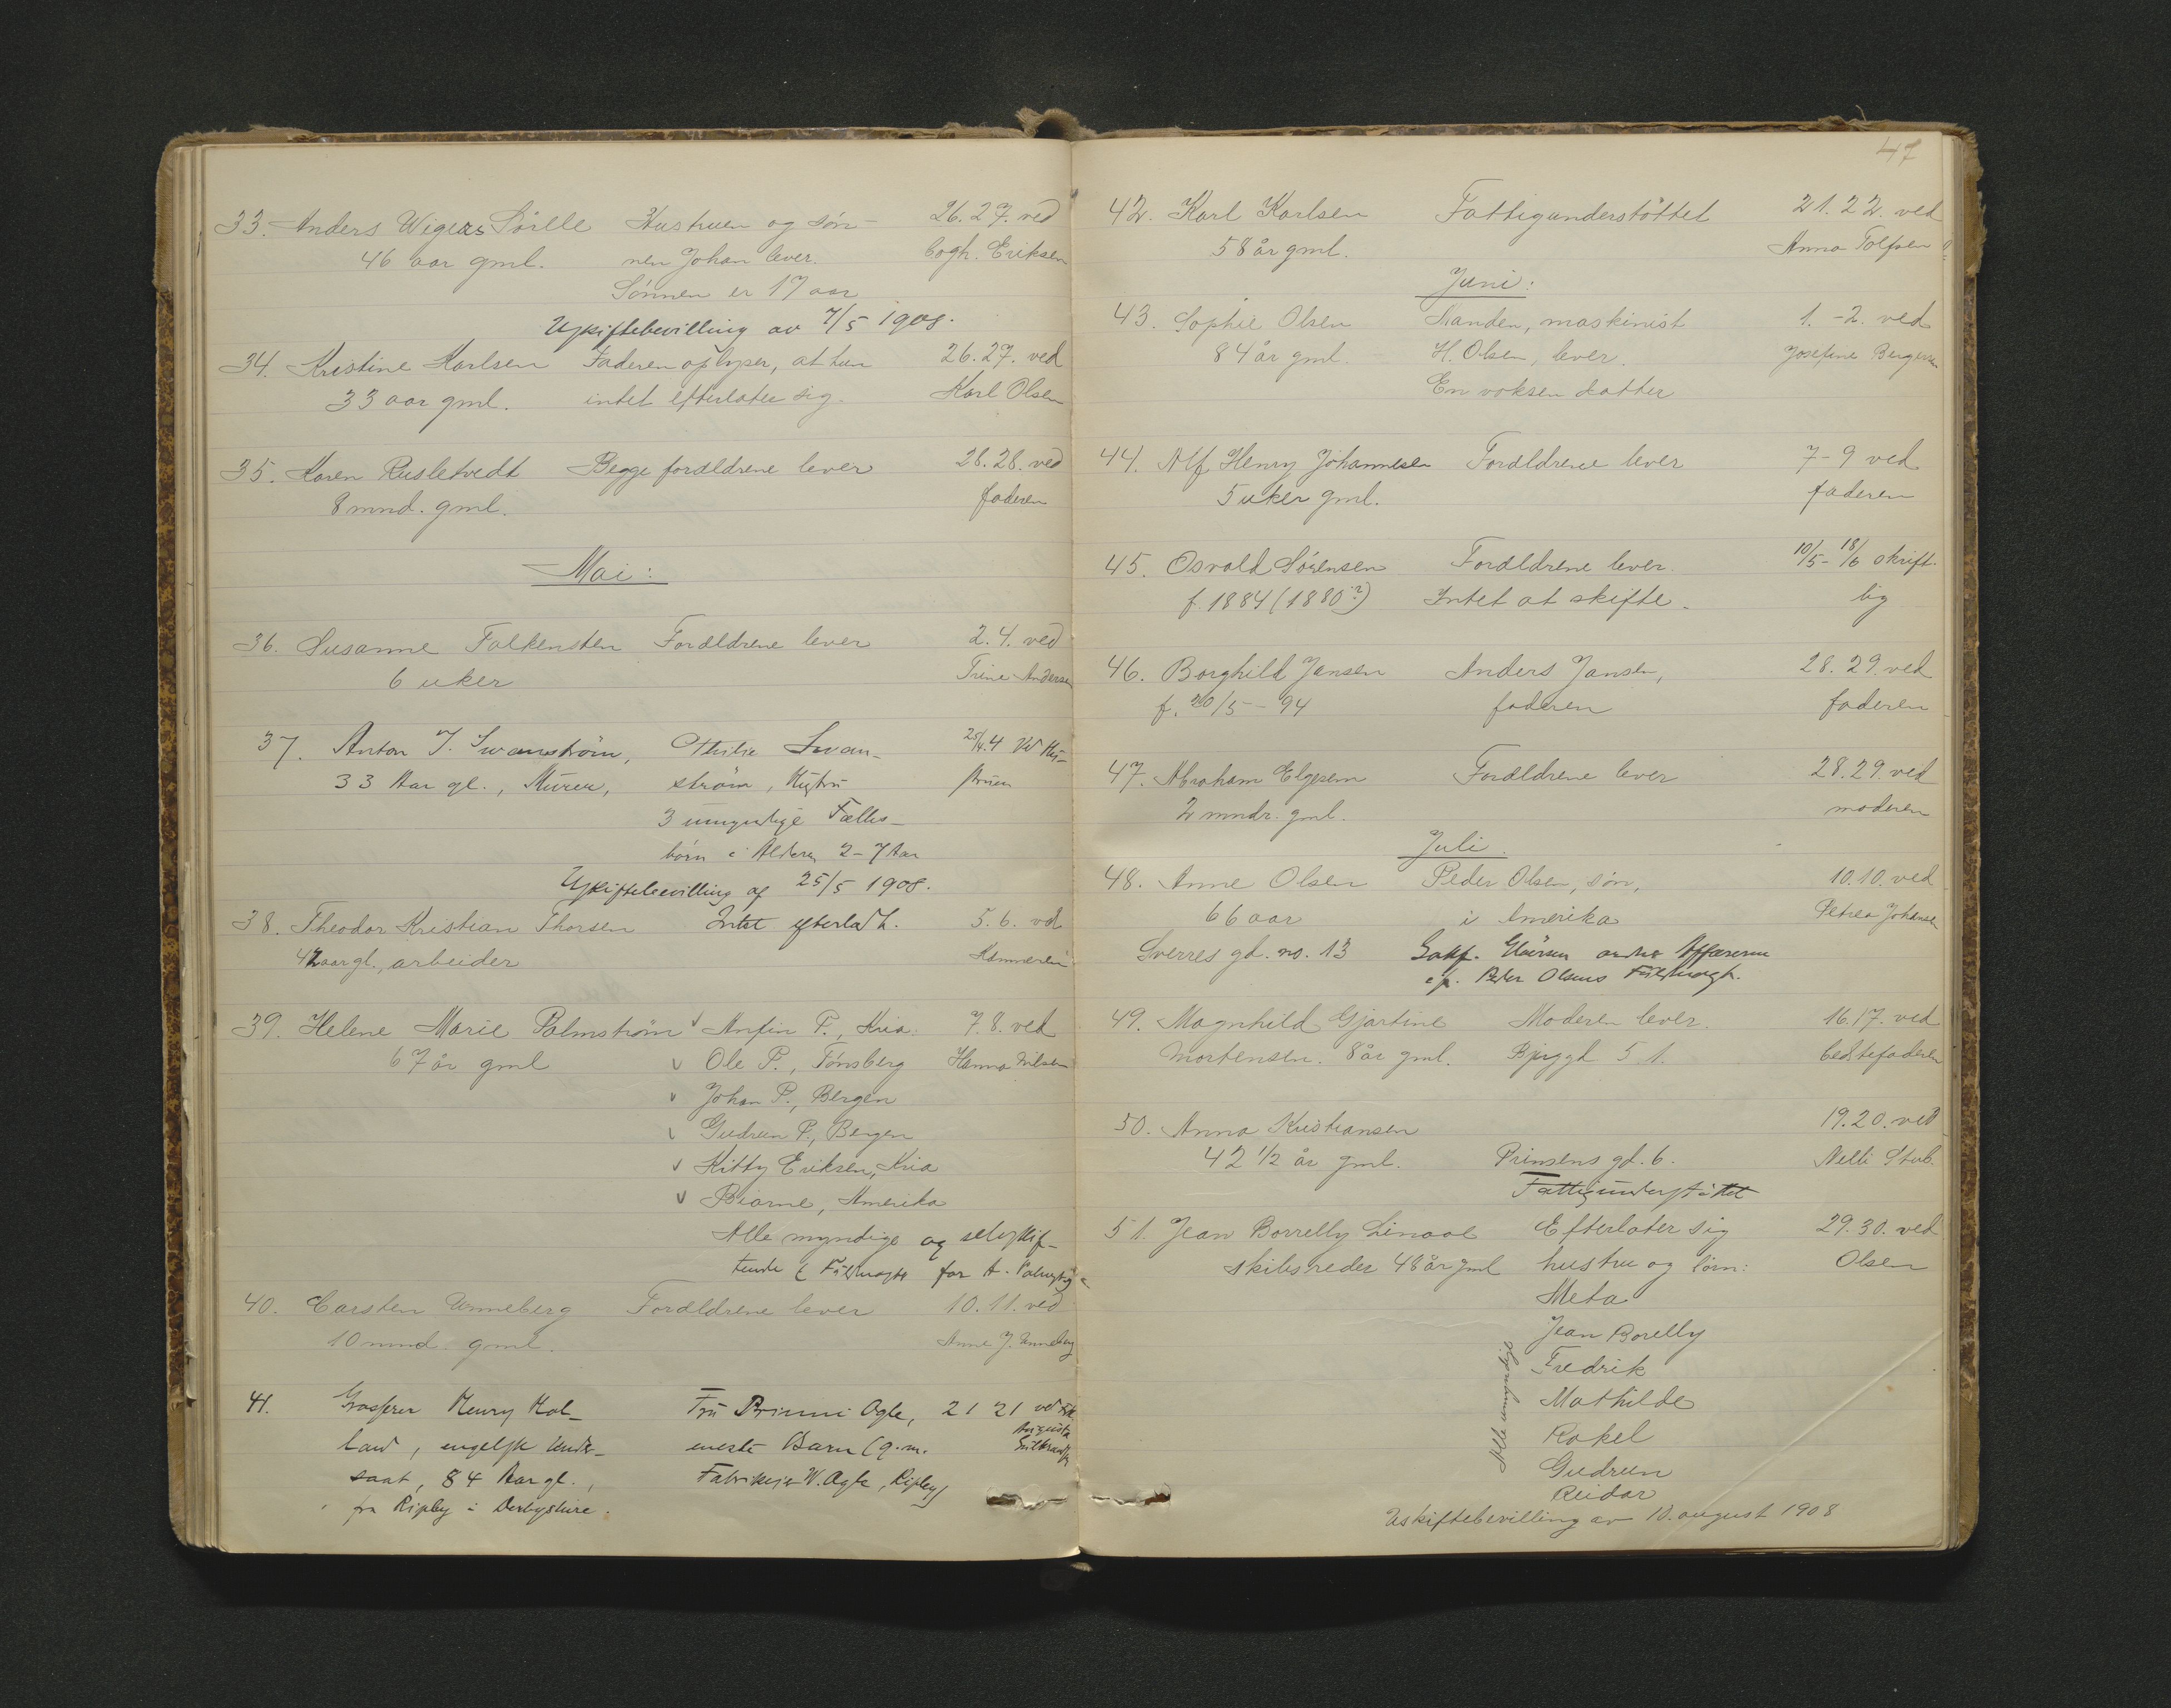 33. Anders Wigers Sörlle Hustruen og søn- 26.27. ved
46 aar gml. nen Johan lever. Cogh. Eriksen
Sönnen er 17 aar
Uskiftebevilling av 7/5 1908.
34. Kristine Karlsen Faderen oplyser, at hun 26.27. ved
33 aar gml. intet efterlater sig. Karl Olsen
35. Karen Rusletvedt Begge forældrene lever 28.28. ved
8 mnd. gml. faderen
Mai:
36. Susanne Falkensten Forældrene lever 2.4. ved
6 uker Trine Andersen
37. Anton J. Swanström, Othilie Swan- 25/4.4 Ved Hu-
33 Aar gl., Murer, ström, Hustru struen
3 umyndige Fælles-
børn i Alderen 2-7 Aar
Uskiftebevilling af 25/5 1908.
38. Theodor Kristian Thorsen Intet efterladt. 5.6. ved
42 aar gl., arbeider
39. Helene Marie Palmstrøm Anfin P., Kria. 7.8. ved
67 år gml Ole P., Tønsberg Hanna Nilsen
Johan P., Bergen
Gudrun P., Bergen
Kitty Eriksen, Kria
Bjarne, Amerika
Alle myndige og selvskif-
tende Fuldmagt for A. Palmstrøm
40. Carsten Unneberg Forældrene lever 10.11. ved
10 mnd. gml. Anne J. Unneberg
41. Grosserer Henry Hol- Fru Ogle, 21 21 ved Frk.
land, engelsk Under- eneste Barn (g.m. Augusta
saat, 84 Aar gl., Fabrikeier W. Ogle, Ripley)
fra Ripley i Derbyshire.
47
42. Karl Karlsen Fattigunderstöttet 21.22. ved
58 år gml. Anna Tolfsen
Juni:
43. Sophie Olsen Manden, maskinist 1.-2. ved
84 år gml. H. Olsen, lever. Josefine Bergersen
En voksen datter
44. Alf Henry Johannesen Forældrene lever 7-9 ved
5 uker gml. faderen
45. Osvald Sørensen Forældrene lever. 10/5-18/6 skrift-
f. 1884 (1880?) Intet at skifte. lig
46. Borghild Jansen Anders Jansen, 28.29. ved
f. 20/5-94 faderen faderen
47. Abraham Elgesem Forældrene lever 28.29. ved
2 mndr. gml. moderen
Juli.
48. Anne Olsen Peder Olsen, søn, 10.10. ved
66 aar i Amerika Petrea Johansen
Sverres gd. no. 13 Sakf. ordner Affærerne
e.f. Peder Olsens Fuldmagt.
49. Magnhild Gjartine Moderen lever. 16.17. ved
Mortensen. 8 år gml. Bjrggd 51. bedstefaderen
50. Anna Kristiansen 19.20. ved
42 1/2 år gml. Prinsens gd. 6. Nelli Stub.
Fattigunderstöttet
51. Jean Borrelly Linaae Efterlater sig 29.30. ved
skibsreder 48 år gml hustru og børn: Olsen
Meta
Jean Borelly
Fredrik
Mathilde
Rakel
Gudrun
Reidar
Alle umyndige
Uskiftebevilling av 10. august 1908